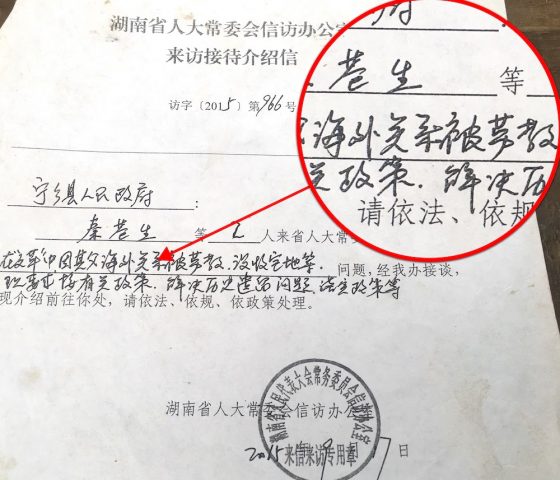 湖南省人大常委会信访办公室
来访接待介绍信
访字〔2015〕第966号
宁乡县人民政府：
秦苍生 等 2 人来省人大常
在文革中因其父海外关系被劳教、没收宅地等 问题，经我办接谈，
现要求按有关政策、解决历史遗留问题、落实政策等
现介绍前往你处，请依法、依规、依政策处理。
湖南省人大常委会信访办公
2015
日
湖南省人民代表大会常务委员会信访办公室
来信来访专用章
苍生 等
海外关系被劳教
关政策、解决历
请依法、依规